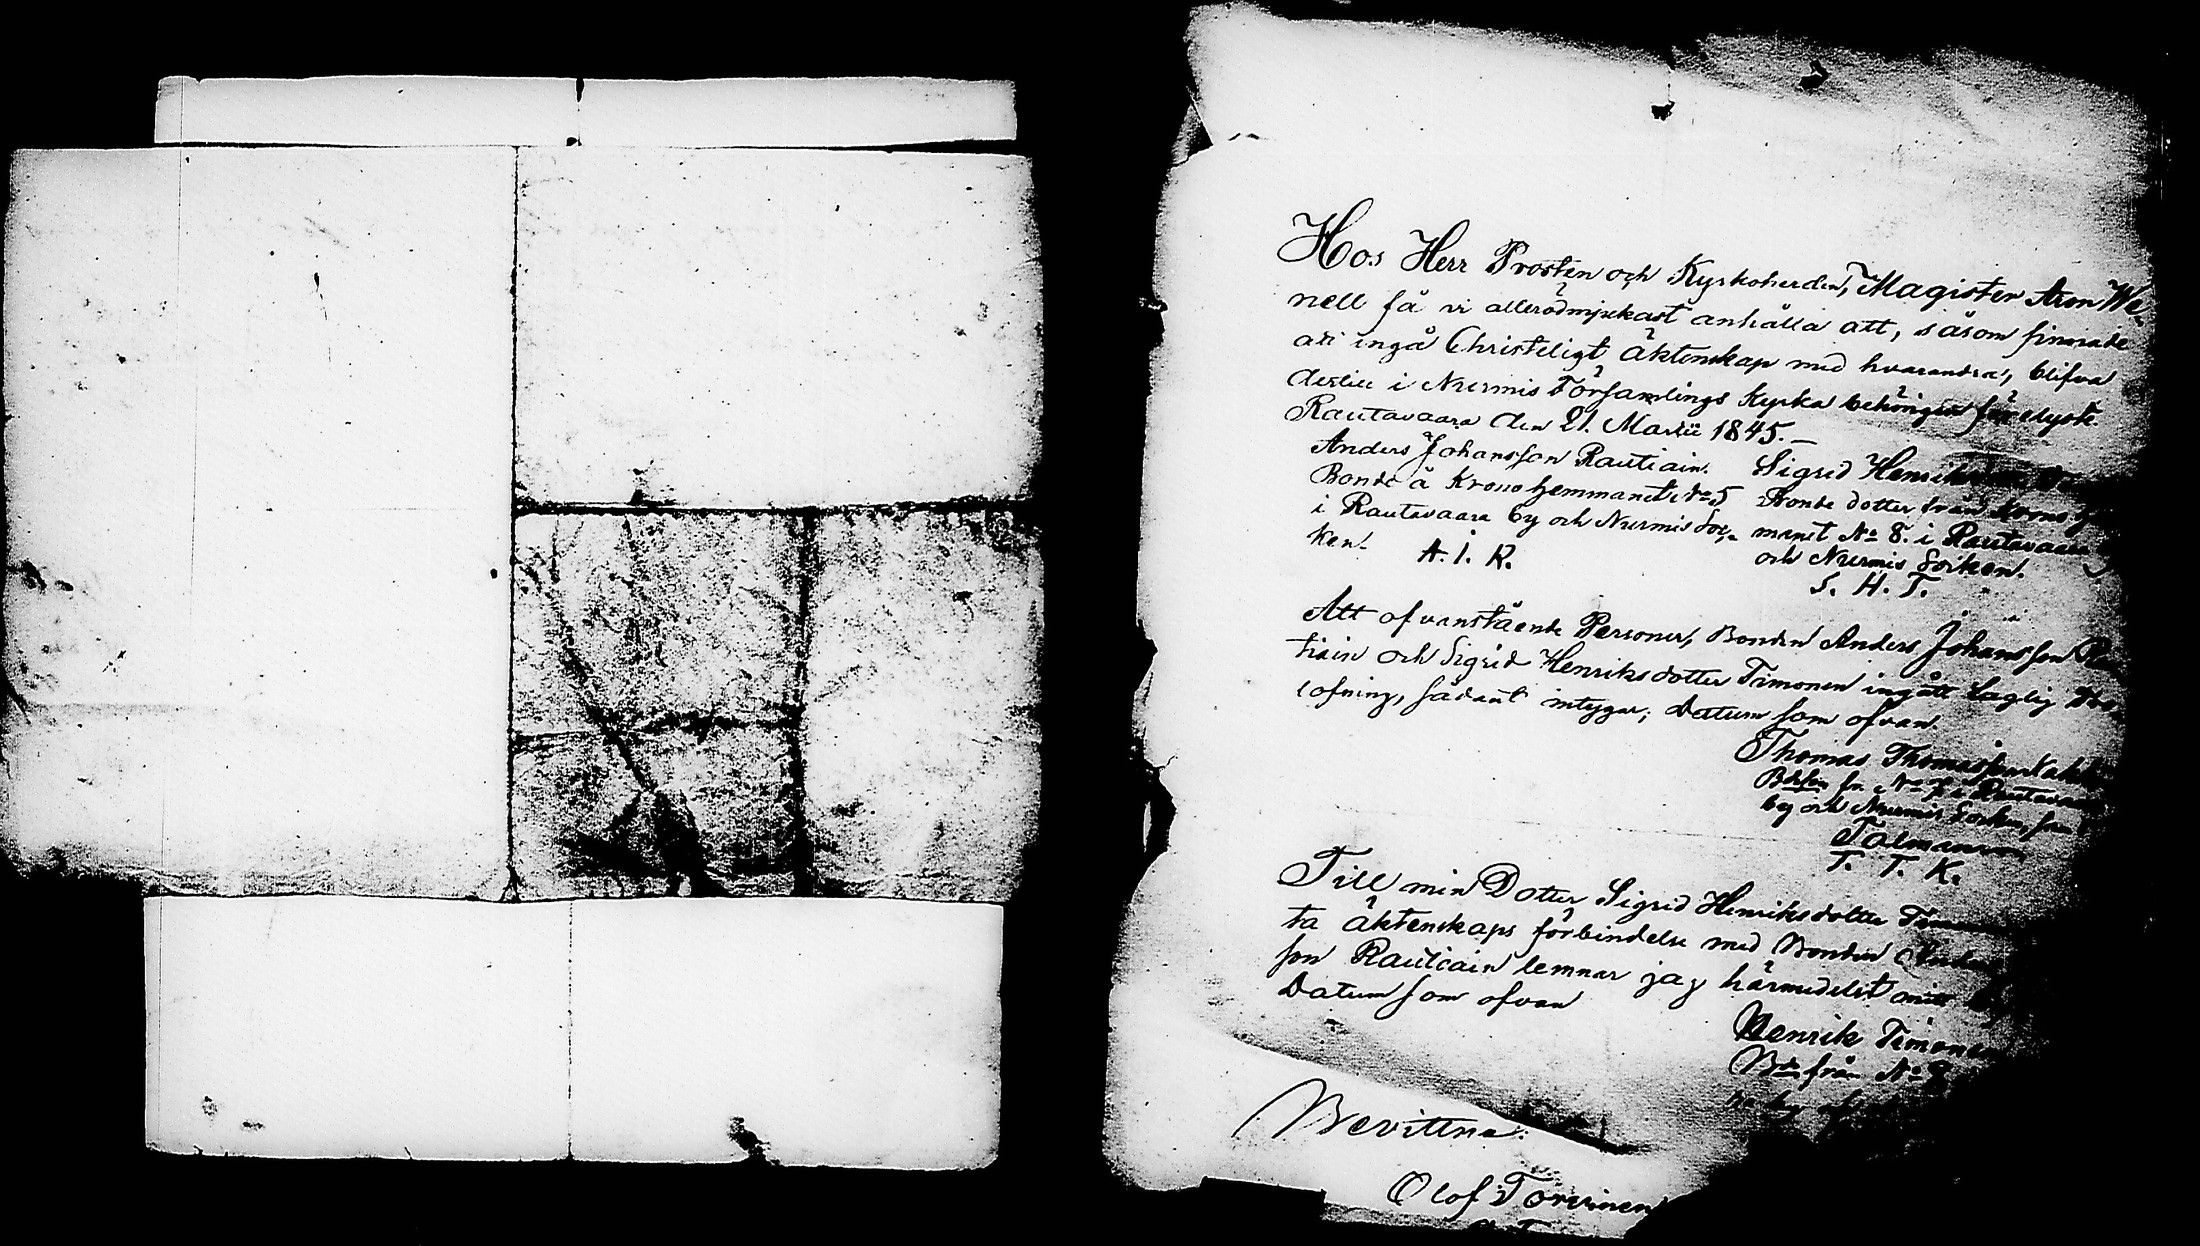 Hos Herr Prosten och Kyrkoherden, Magister Aron We-
nell få vi allerödmjukast anhålla att, såsom sinnade
att ingå Christeligt äktenskap med hvarandra, blifva
derlill i Nurmis Församlings Kyrka behörigen förelyste.
Rautavaara den 21. Martii 1845.—
Anders Johansson Rautiain.
Bonde å Krono hemmanet No 5
i Rautavaara by och Nurmis Soc-
ken.
A. I. R.
Sigrid Henriks
Bonde dotter från Krono
manet No 8. i Rautavaara
och Nurmis Socken.
S. H. T.
Att ofvanstående Personer, Bonden Anders Johansson Rau
tiain och Sigrid Henriksdotter Timonen ingått Laglig
lofning, sådant intygar; Datum som ofvan.
Thomas Thomasson
Bdeson fr. No i Rautavaara
by och Nurmis Socken, som
Talmann
T. T. K.
Till min Dotter Sigrid Henriksdotter
ta äktenskaps förbindelse med Bonden
son Rautiain lemnar jag härmedelst mitt
Datum som ofvan
Henrik Timonen
Bde från No 8
Bevittna:
Olof Torvinen